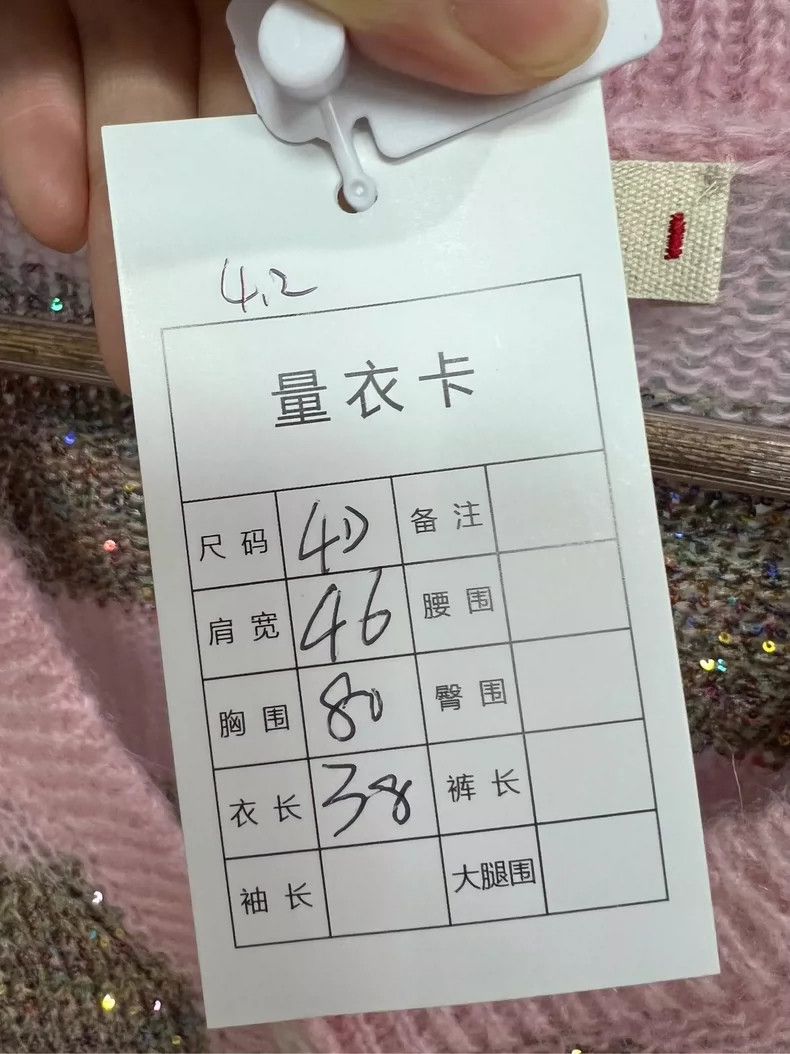 4.2
量衣卡
尺码 40 备注
肩宽 46 腰围
胸围 80 臀围
衣长 38 裤长
袖长 大腿围